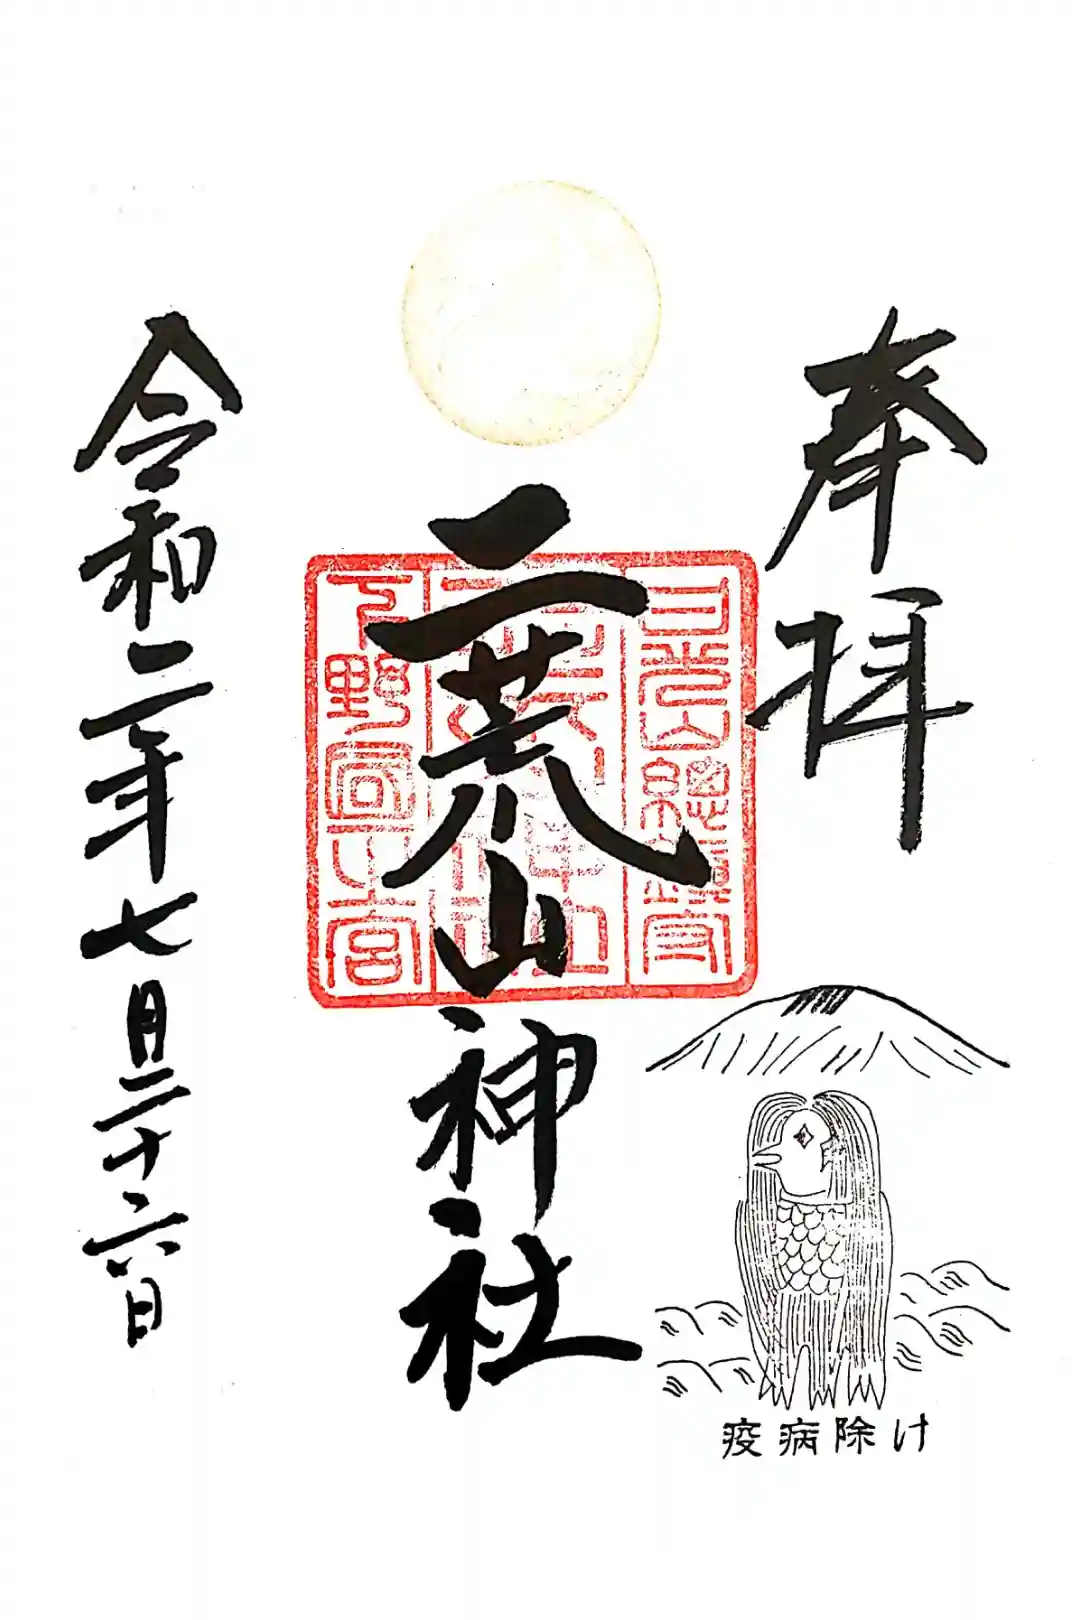 奉拝
日光山總鎮守
二荒山神社
下野國一之宮
二荒山神社
令和二年七月二十六日
疫病除け